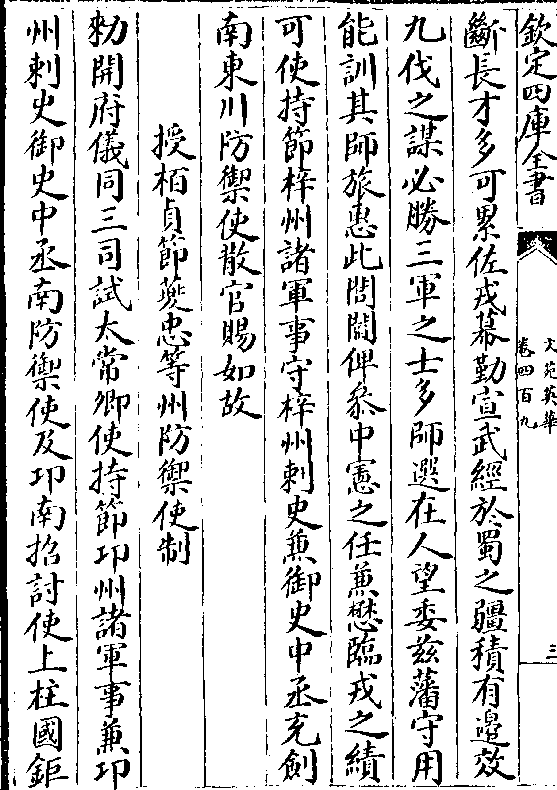 欽定四庫全書
文苑英華
卷四百九
三
斷長才多可累佐戎幕勤宣武經於蜀之疆積有邊效
九伐之謀必勝三軍之士多師選在人望委兹藩守用
能訓其師旅惠此閭閻俾叅中憲之任兼懋臨戎之績
可使持節梓州諸軍事守梓州刺史兼御史中丞充劍
南東川防禦使散官賜如故
授栢貞節䕫忠等州防禦使制
勑開府儀同三司試太常卿使持節邛州諸軍事兼邛
州刺史御史中丞南防禦使及邛南招討使上柱國鉅